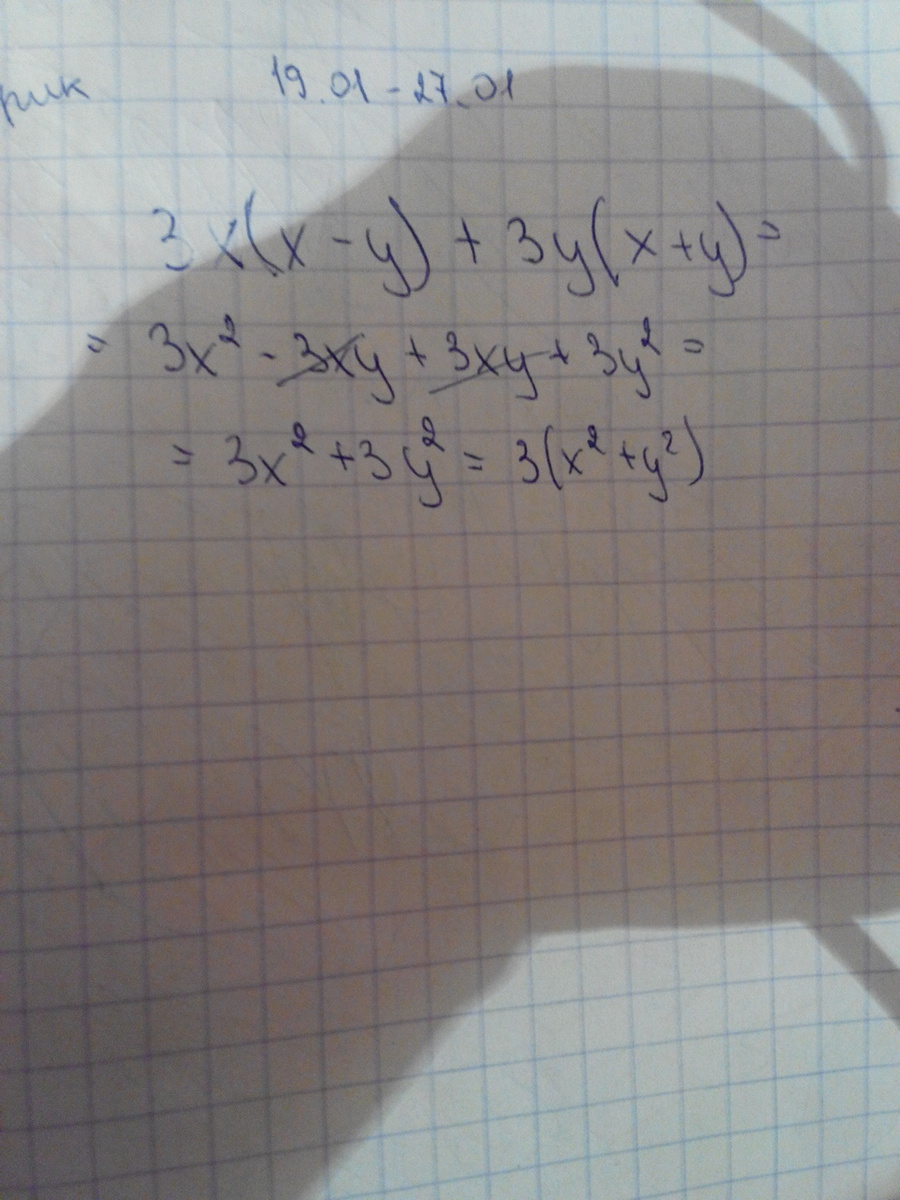 рик 19.01-27.01
3x(x-y)+3y(x+y)=
= 3x²-3xy+3xy+3y²=
= 3x²+3y²=3(x²+y²)